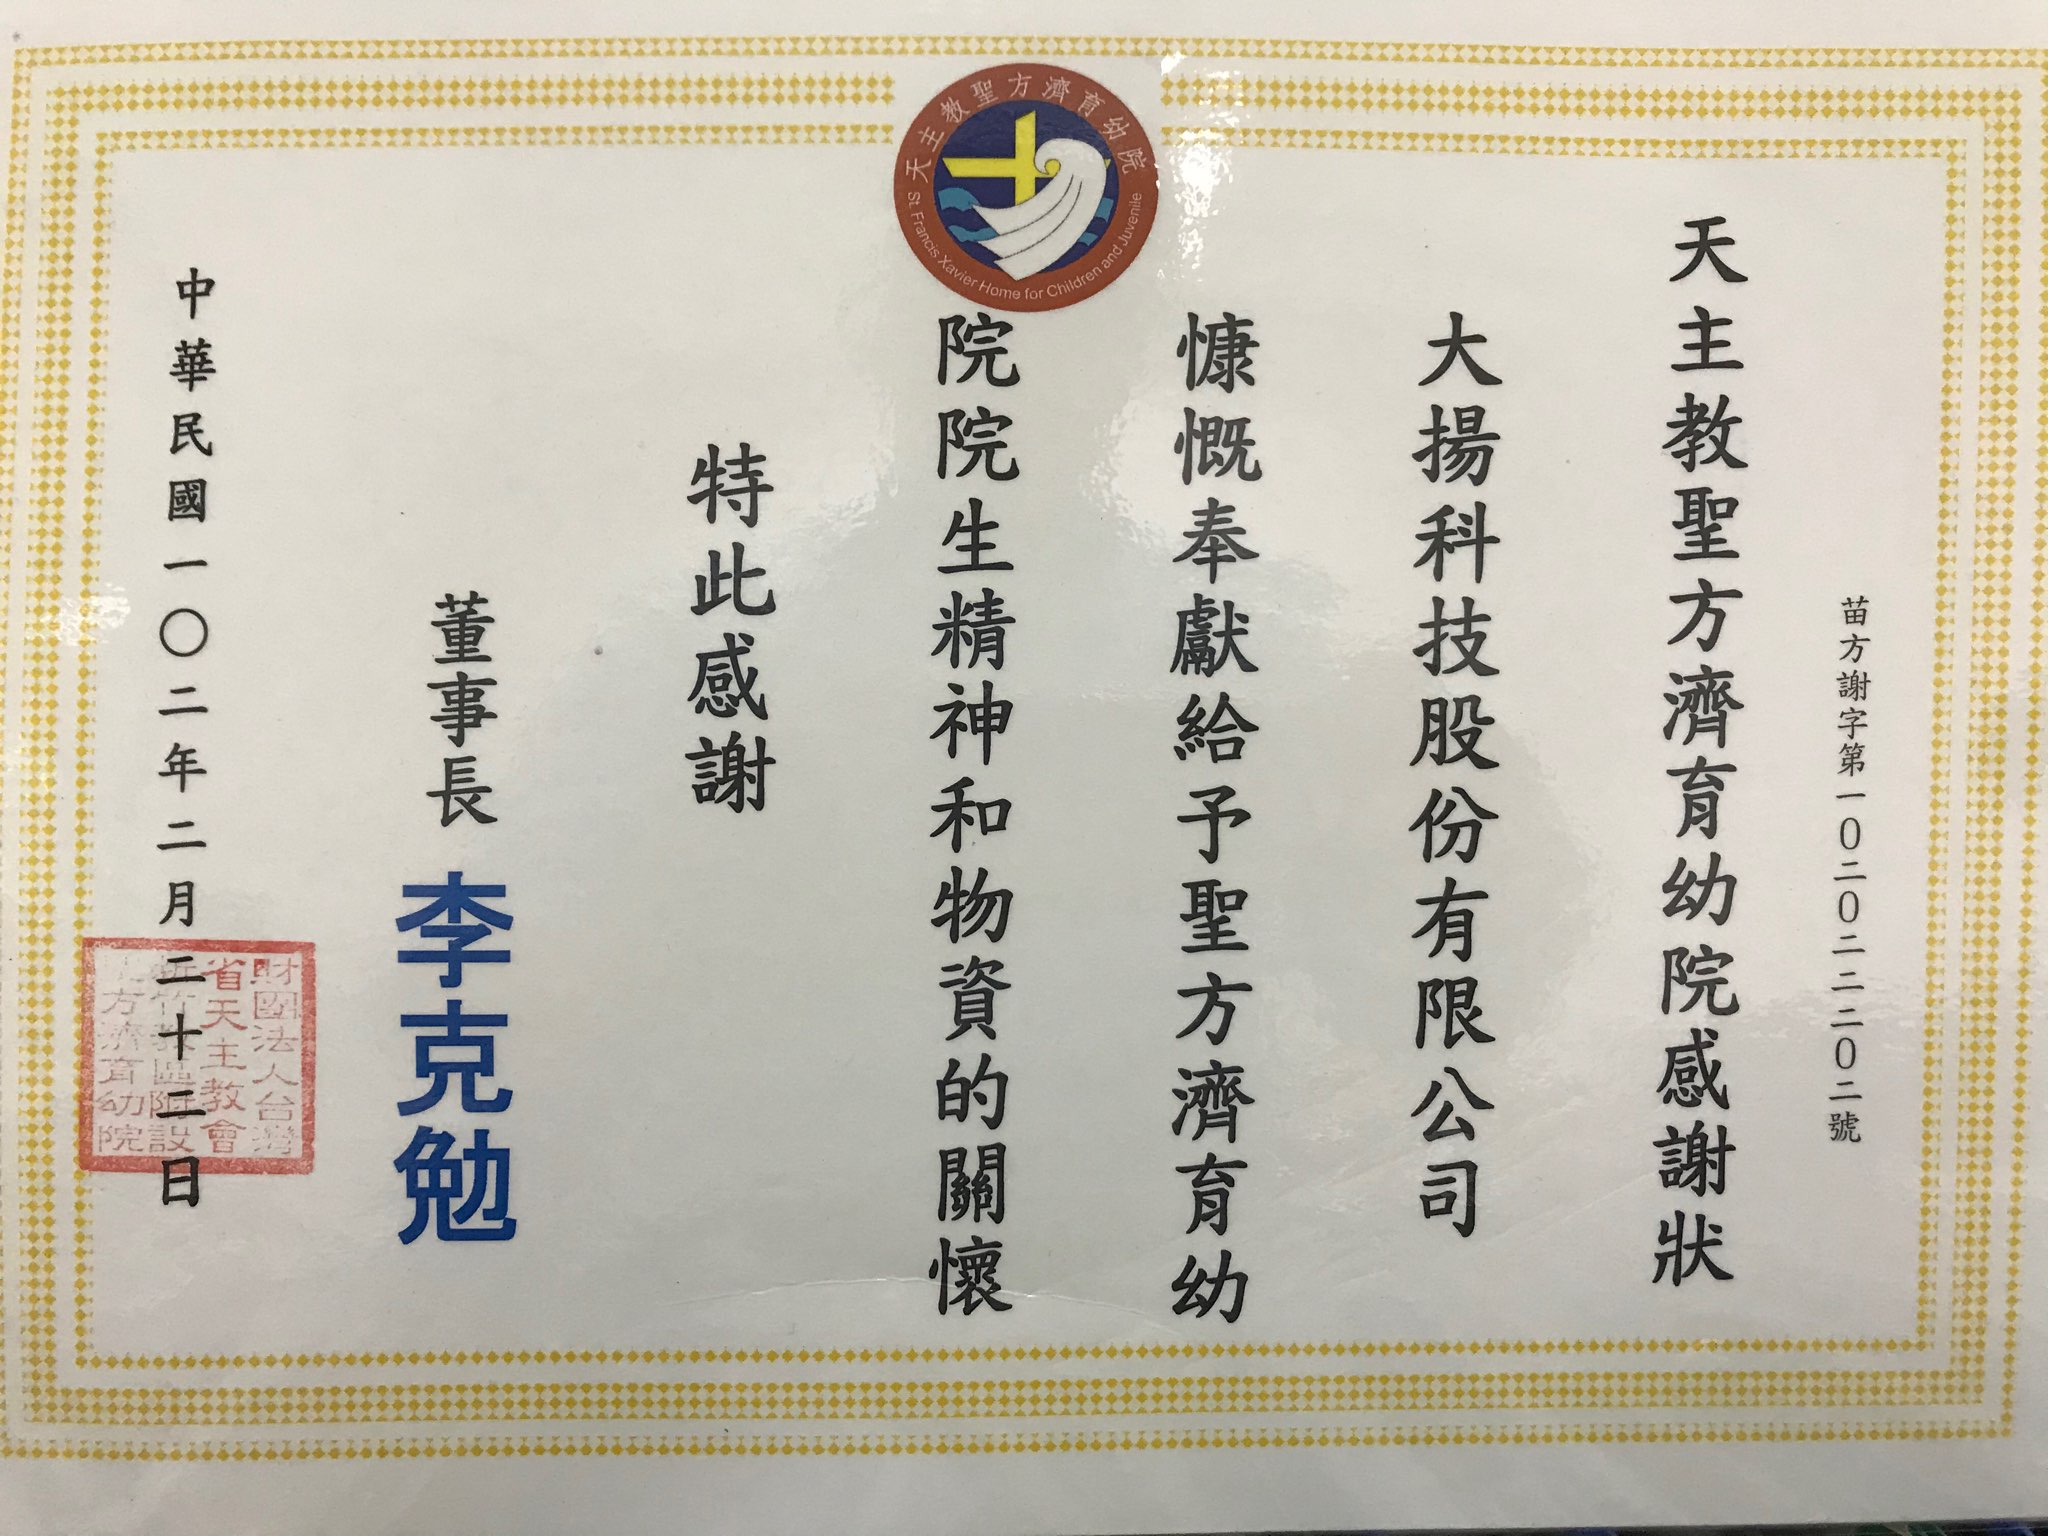 天主教聖方濟育幼院
St. Francis Xavier Home for Children and Juvenile
苗方謝字第一0二0二二二0二號
天主教聖方濟育幼院感謝狀
大揚科技股份有限公司
慷慨奉獻給予聖方濟育幼
院院生精神和物資的關懷
特此感謝
董事長 李克勉
中華民國一〇二年二月二十二日
財團法人台灣
省天主教會
新竹教區附設
方濟育幼院